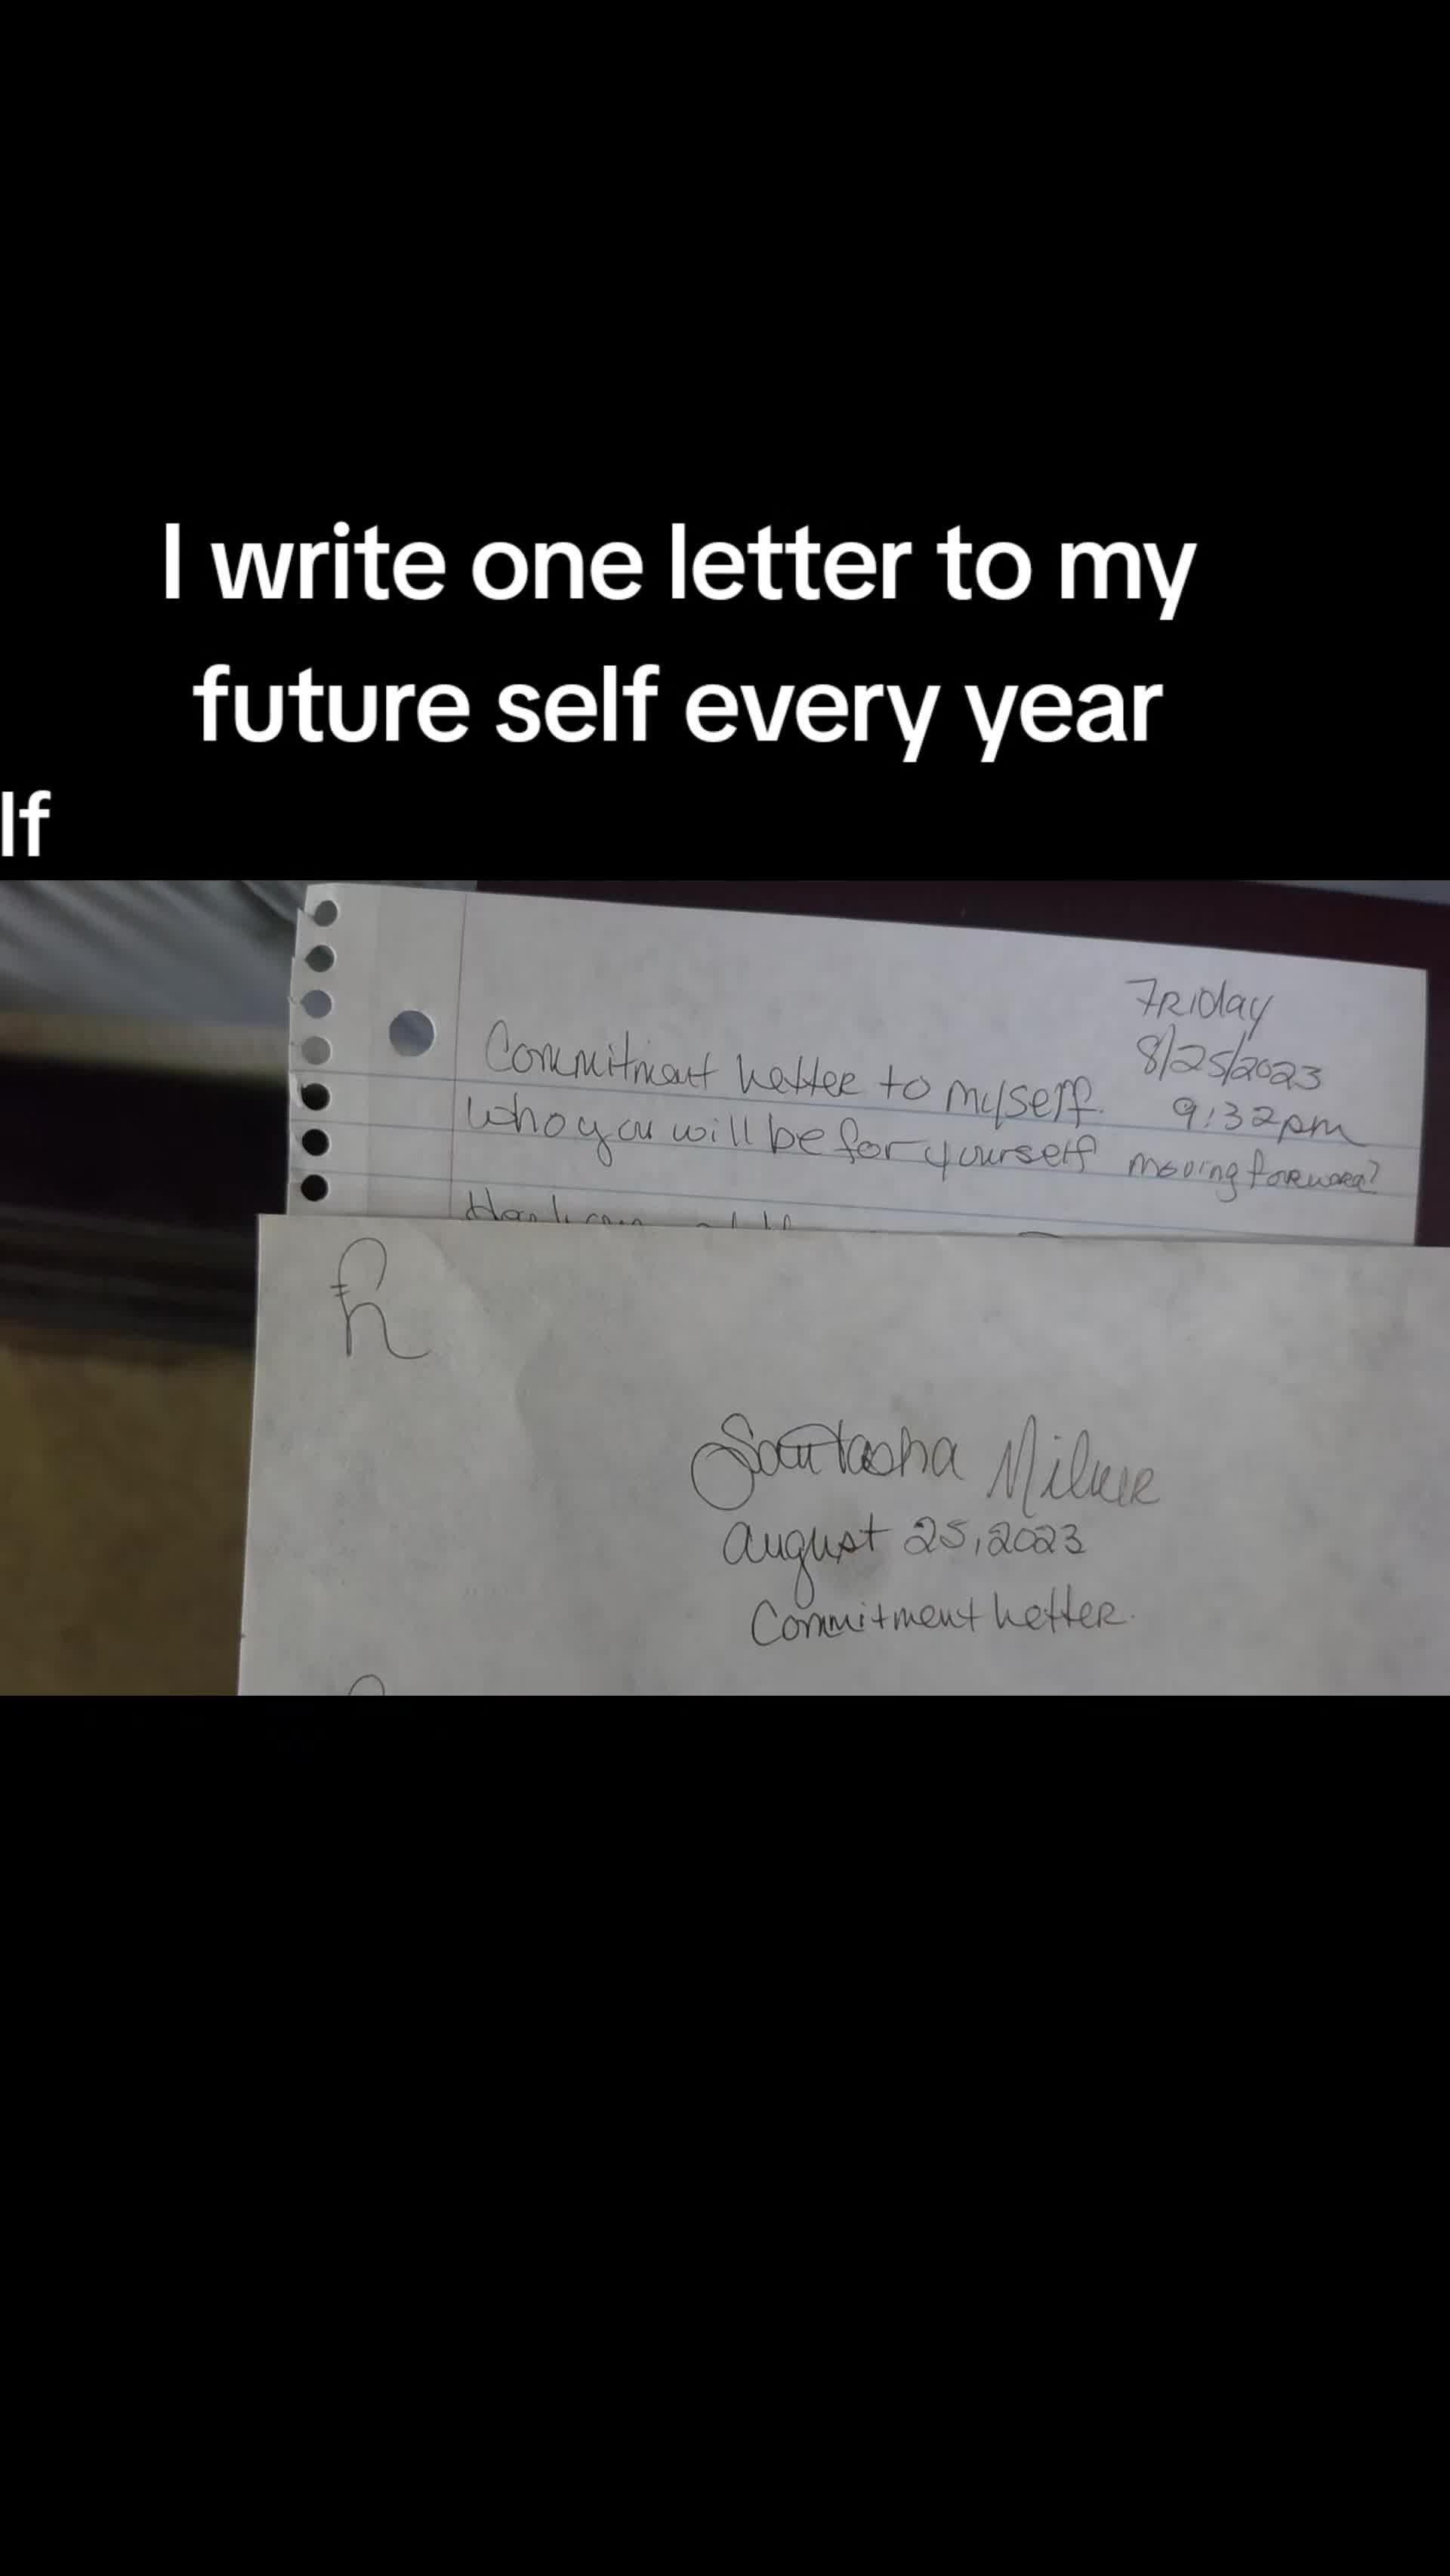 I write one letter to my
future self every year
lf
Friday
8/25/2023
9:32pm
Commitment Letter to myself.
Who you will be for yourself moving forward?
Milner
August 25, 2023
Commitment Letter.